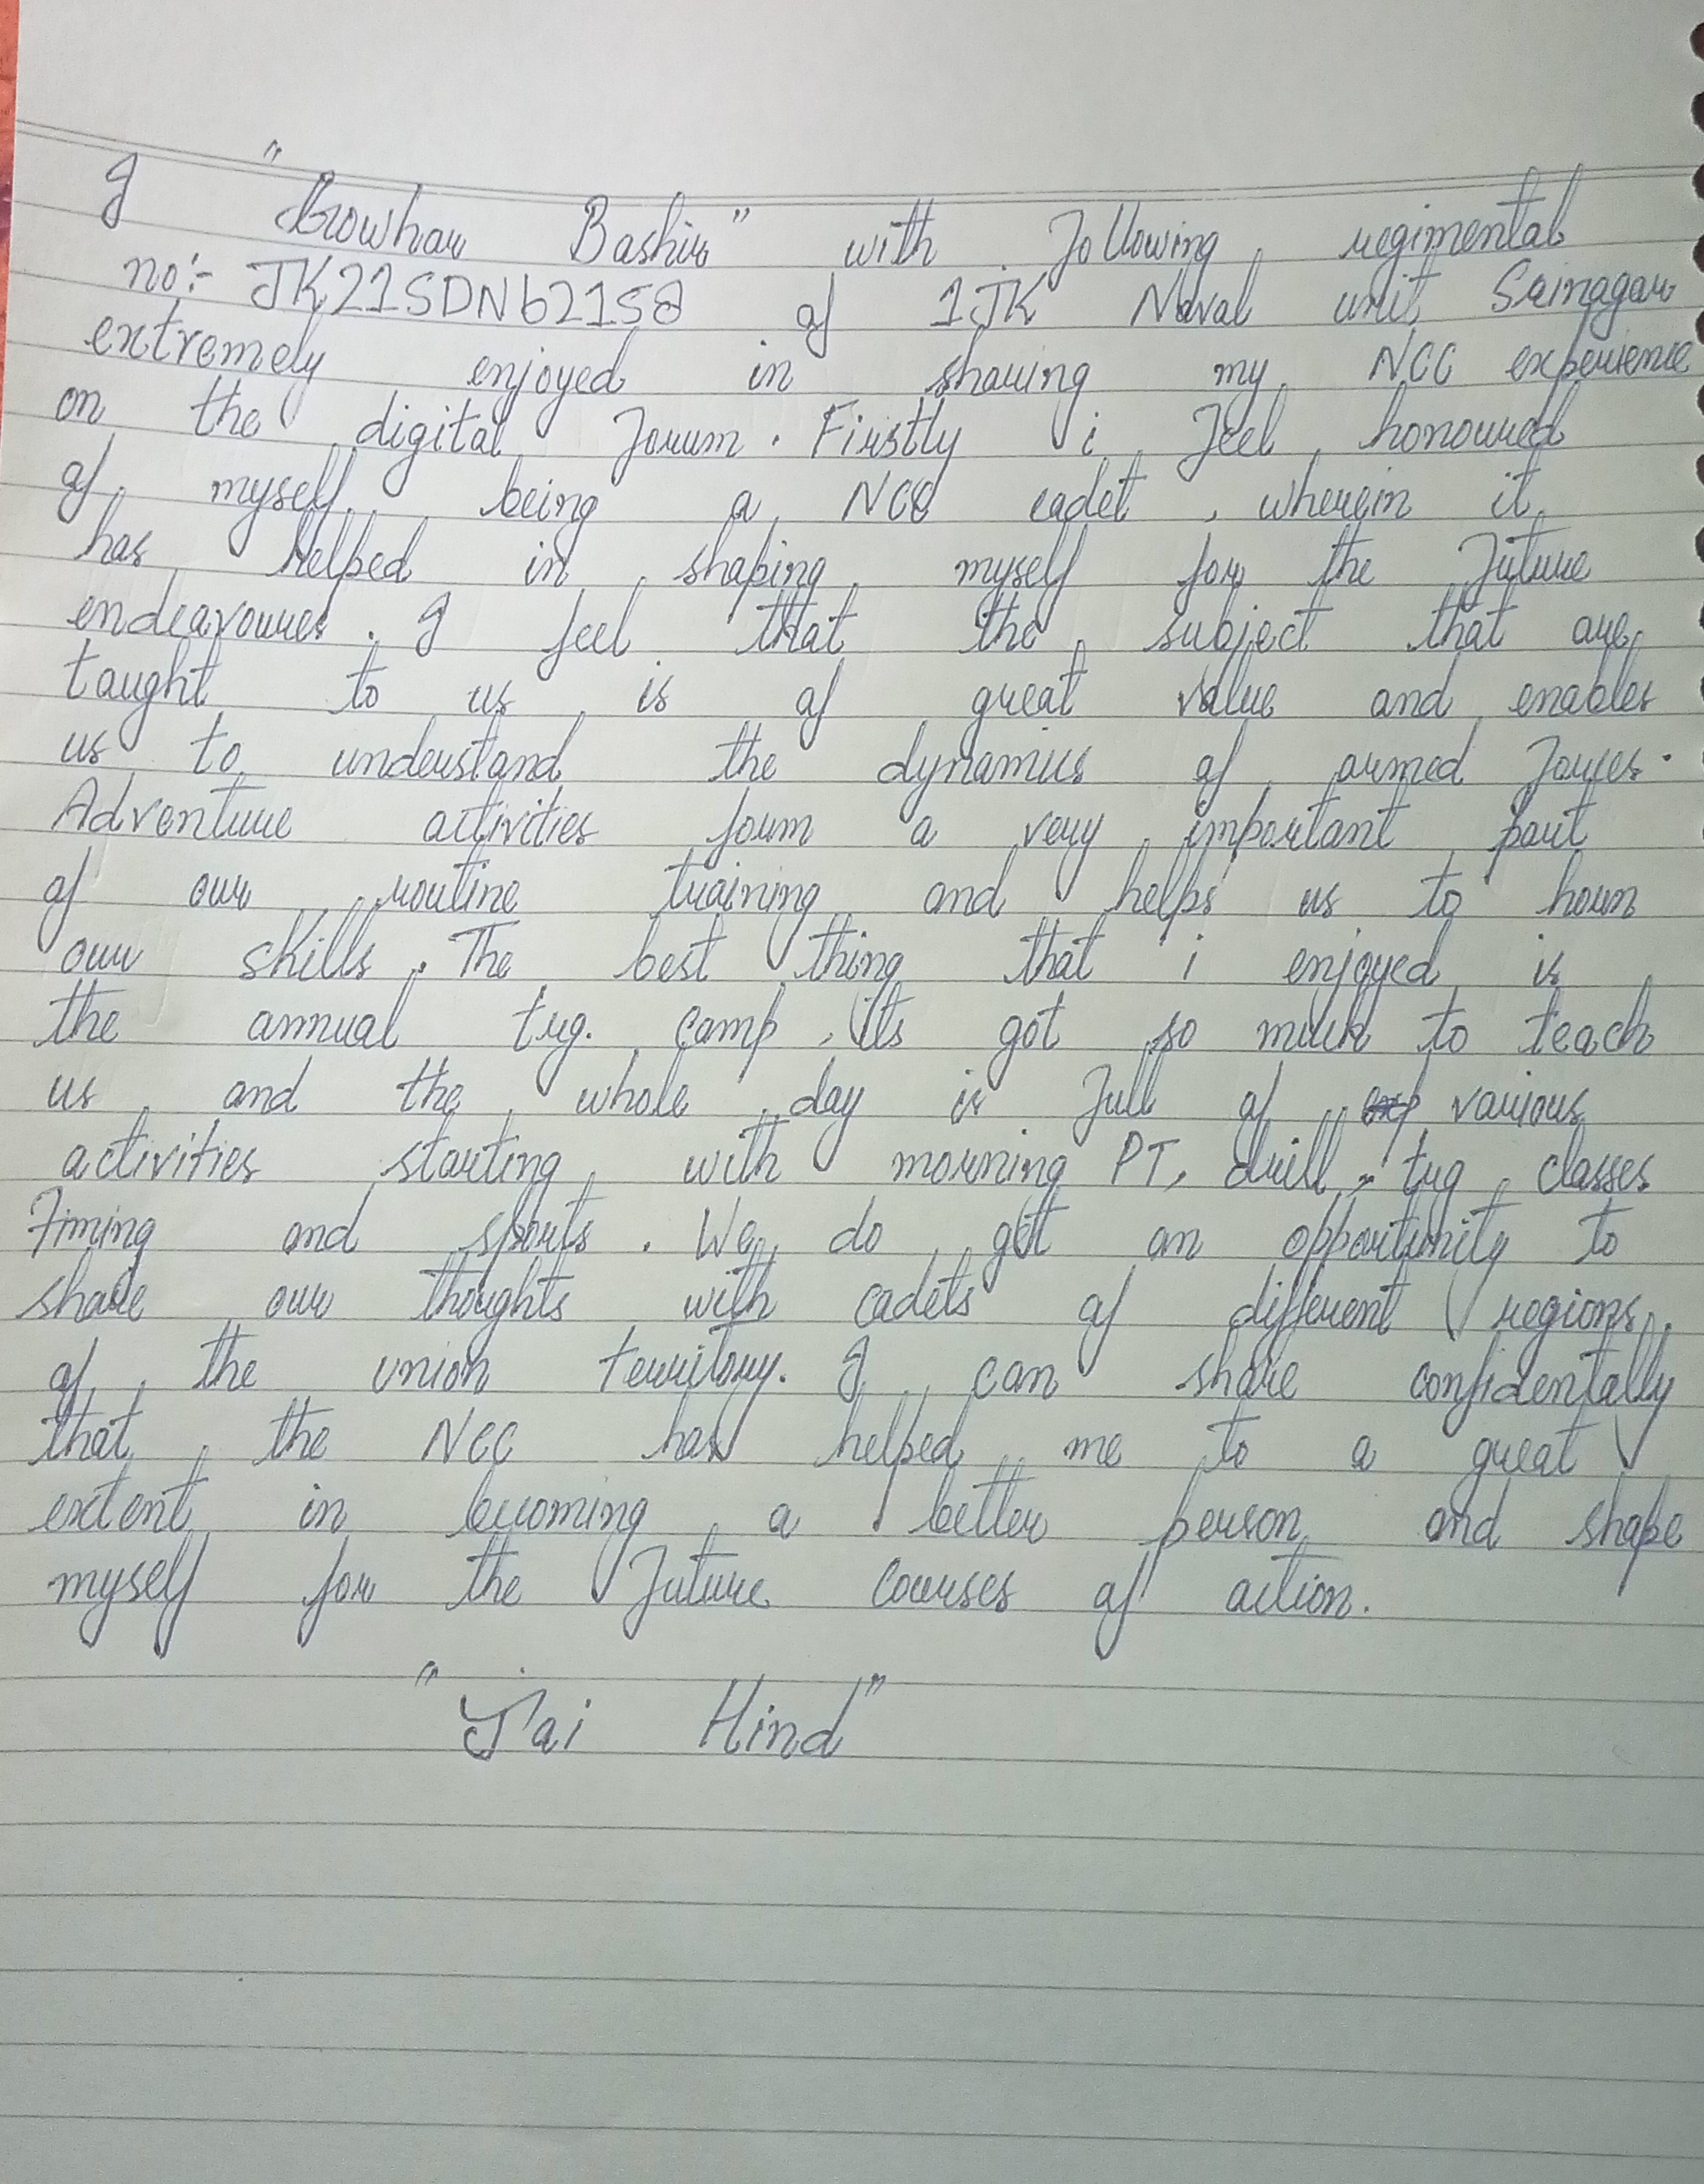 I "Gowhar Bashir" with following regimental
no:- JK21SDN62158 of 1JK Naval unit, Srinagar
extremely enjoyed in sharing my NCC experience
on the digital forum. Firstly i feel honoured
of myself being a NCC cadet, wherein it
has helped in shaping myself for the future
endeavoures. I feel that the subject that are
taught to us is of great value and enables
us to understand the dynamics of armed forces.
Adventure activities form a very important part
of our routine training and helps us to horn
our skills. The best thing that i enjoyed is
the annual trg. camp, its got so much to teach
us and the whole day is full of various
activities starting with morning PT, drill, trg classes
firing and sports. We do get an opportunity to
share our thoughts with cadets of different regions
of the union territory. I can share confidentally
that the NCC has helped me to a great
extent in becoming a better person and shape
myself for the future courses of action.
"Jai Hind"